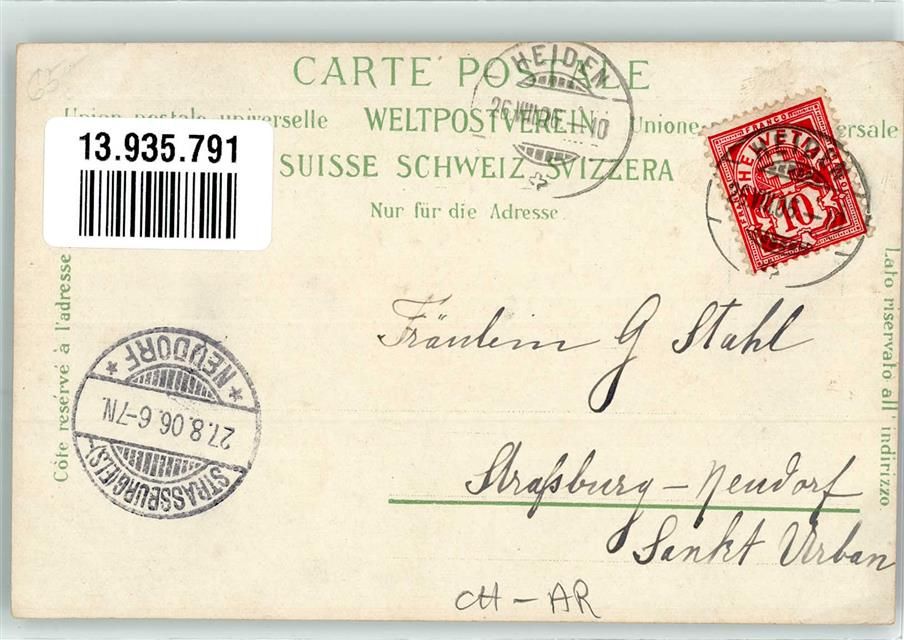 65.-
CARTE POSTALE
HEIDEN
26.VIII.06 10
Union postale universelle WELTPOSTVEREIN Unione
SUISSE SCHWEIZ SVIZZERA
Nur für die Adresse.
13.935.791
FRANCO
HELVETIA
10
HEIDEN
VIII.06
Côté réservé à l'adresse
Lato riservato all' indirizzo
Fräulein G Stahl
Straßburg - Neudorf
Sankt Urban
STRASSBURG (ELS)
27.8.06. 6-7N.
* NEUDORF *
CH - AR